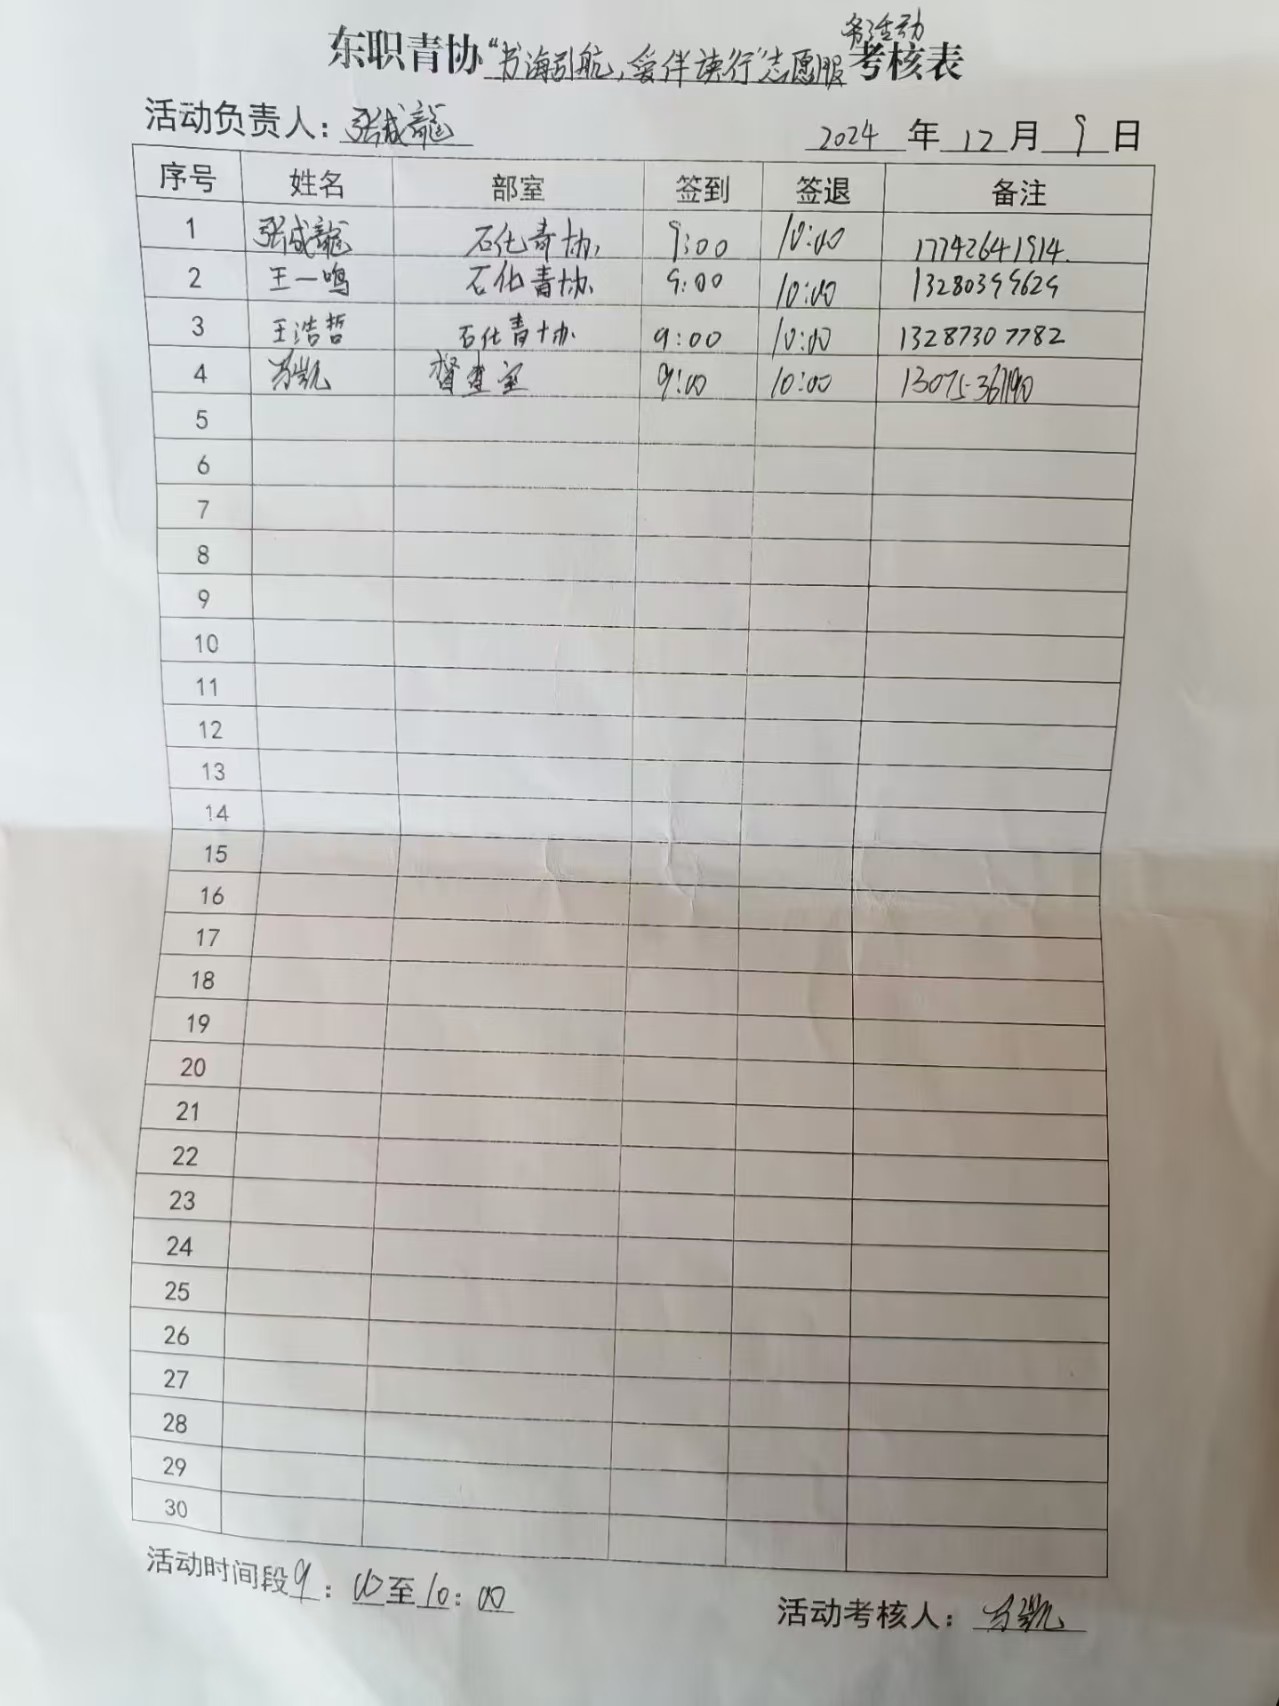 东职青协“书海引航，爱伴读行”志愿服务活动考核表
活动负责人：张成龍 2024年12月9日
序号 姓名 部室 签到 签退 备注
1 张成龍 石化青协 9:00 10:00 17742641914
2 王一鸣 石化青协 9:00 10:00 13280399629
3 王浩哲 石化青协 9:00 10:00 13287307782
4 凯 督查室 9:00 10:00 13075
5
6
7
8
9
10
11
12
13
14
15
16
17
18
19
20
21
22
23
24
25
26
27
28
29
30
活动时间段9：00至10：00
活动考核人：凯